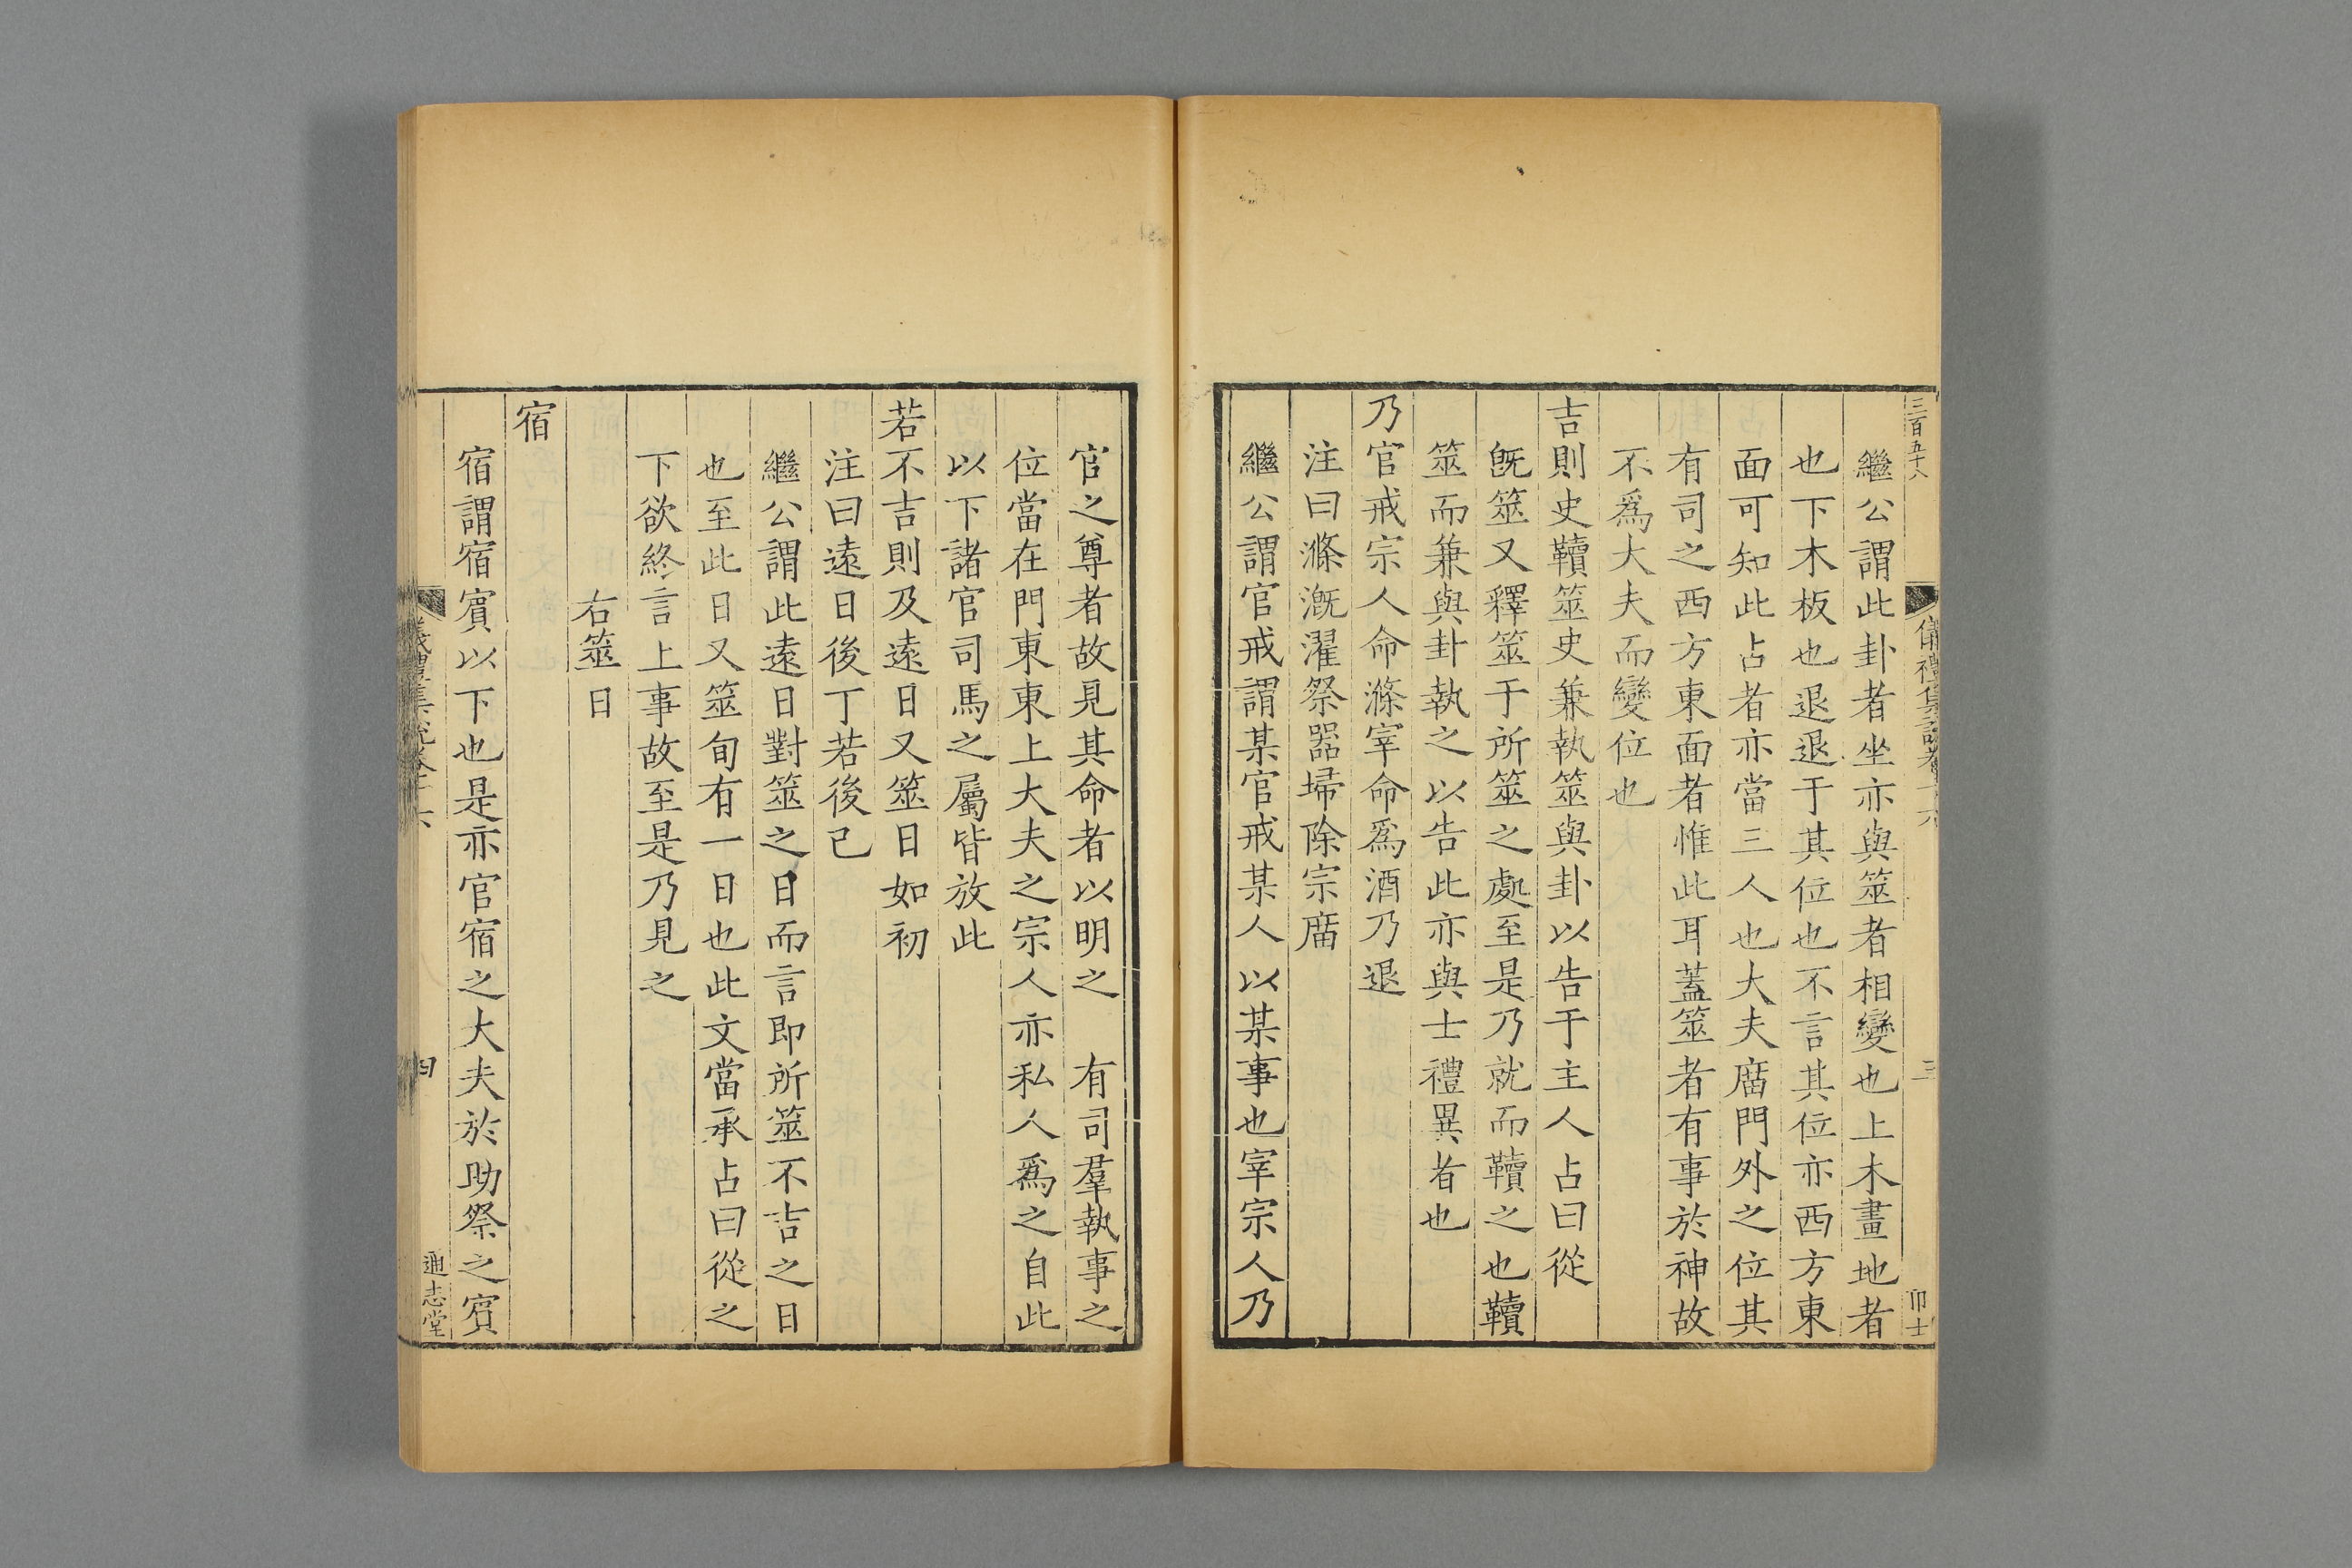 三百五十八
儀禮集說卷十六
三
繼公謂此卦者坐亦與筮者相變也上木畫地者
也下木板也退退于其位也不言其位亦西方東
面可知此占者亦當三人也大夫廟門外之位其
有司之西方東面者惟此耳蓋筮者有事於神故
不爲大夫而變位也
吉則史韇筮史兼執筮與卦以告于主人占曰從
旣筮又釋筮于所筮之處至是乃就而韇之也韇
筮而兼與卦執之以告此亦與士禮異者也
乃官戒宗人命滌宰命爲酒乃退
注曰滌漑濯祭器埽除宗庿
繼公謂官戒謂某官戒某人以某事也宰宗人乃
官之尊者故見其命者以明之　有司羣執事之
位當在門東東上大夫之宗人亦私人爲之自此
以下諸官司馬之屬皆放此
若不吉則及遠日又筮日如初
注曰遠日後丁若後己
繼公謂此遠日對筮之日而言即所筮不吉之日
也至此日又筮旬有一日也此文當承占曰從之
下欲終言上事故至是乃見之
右筮日
宿
宿謂宿賓以下也是亦官宿之大夫於助祭之賓
儀禮集說卷十六
四
通志堂